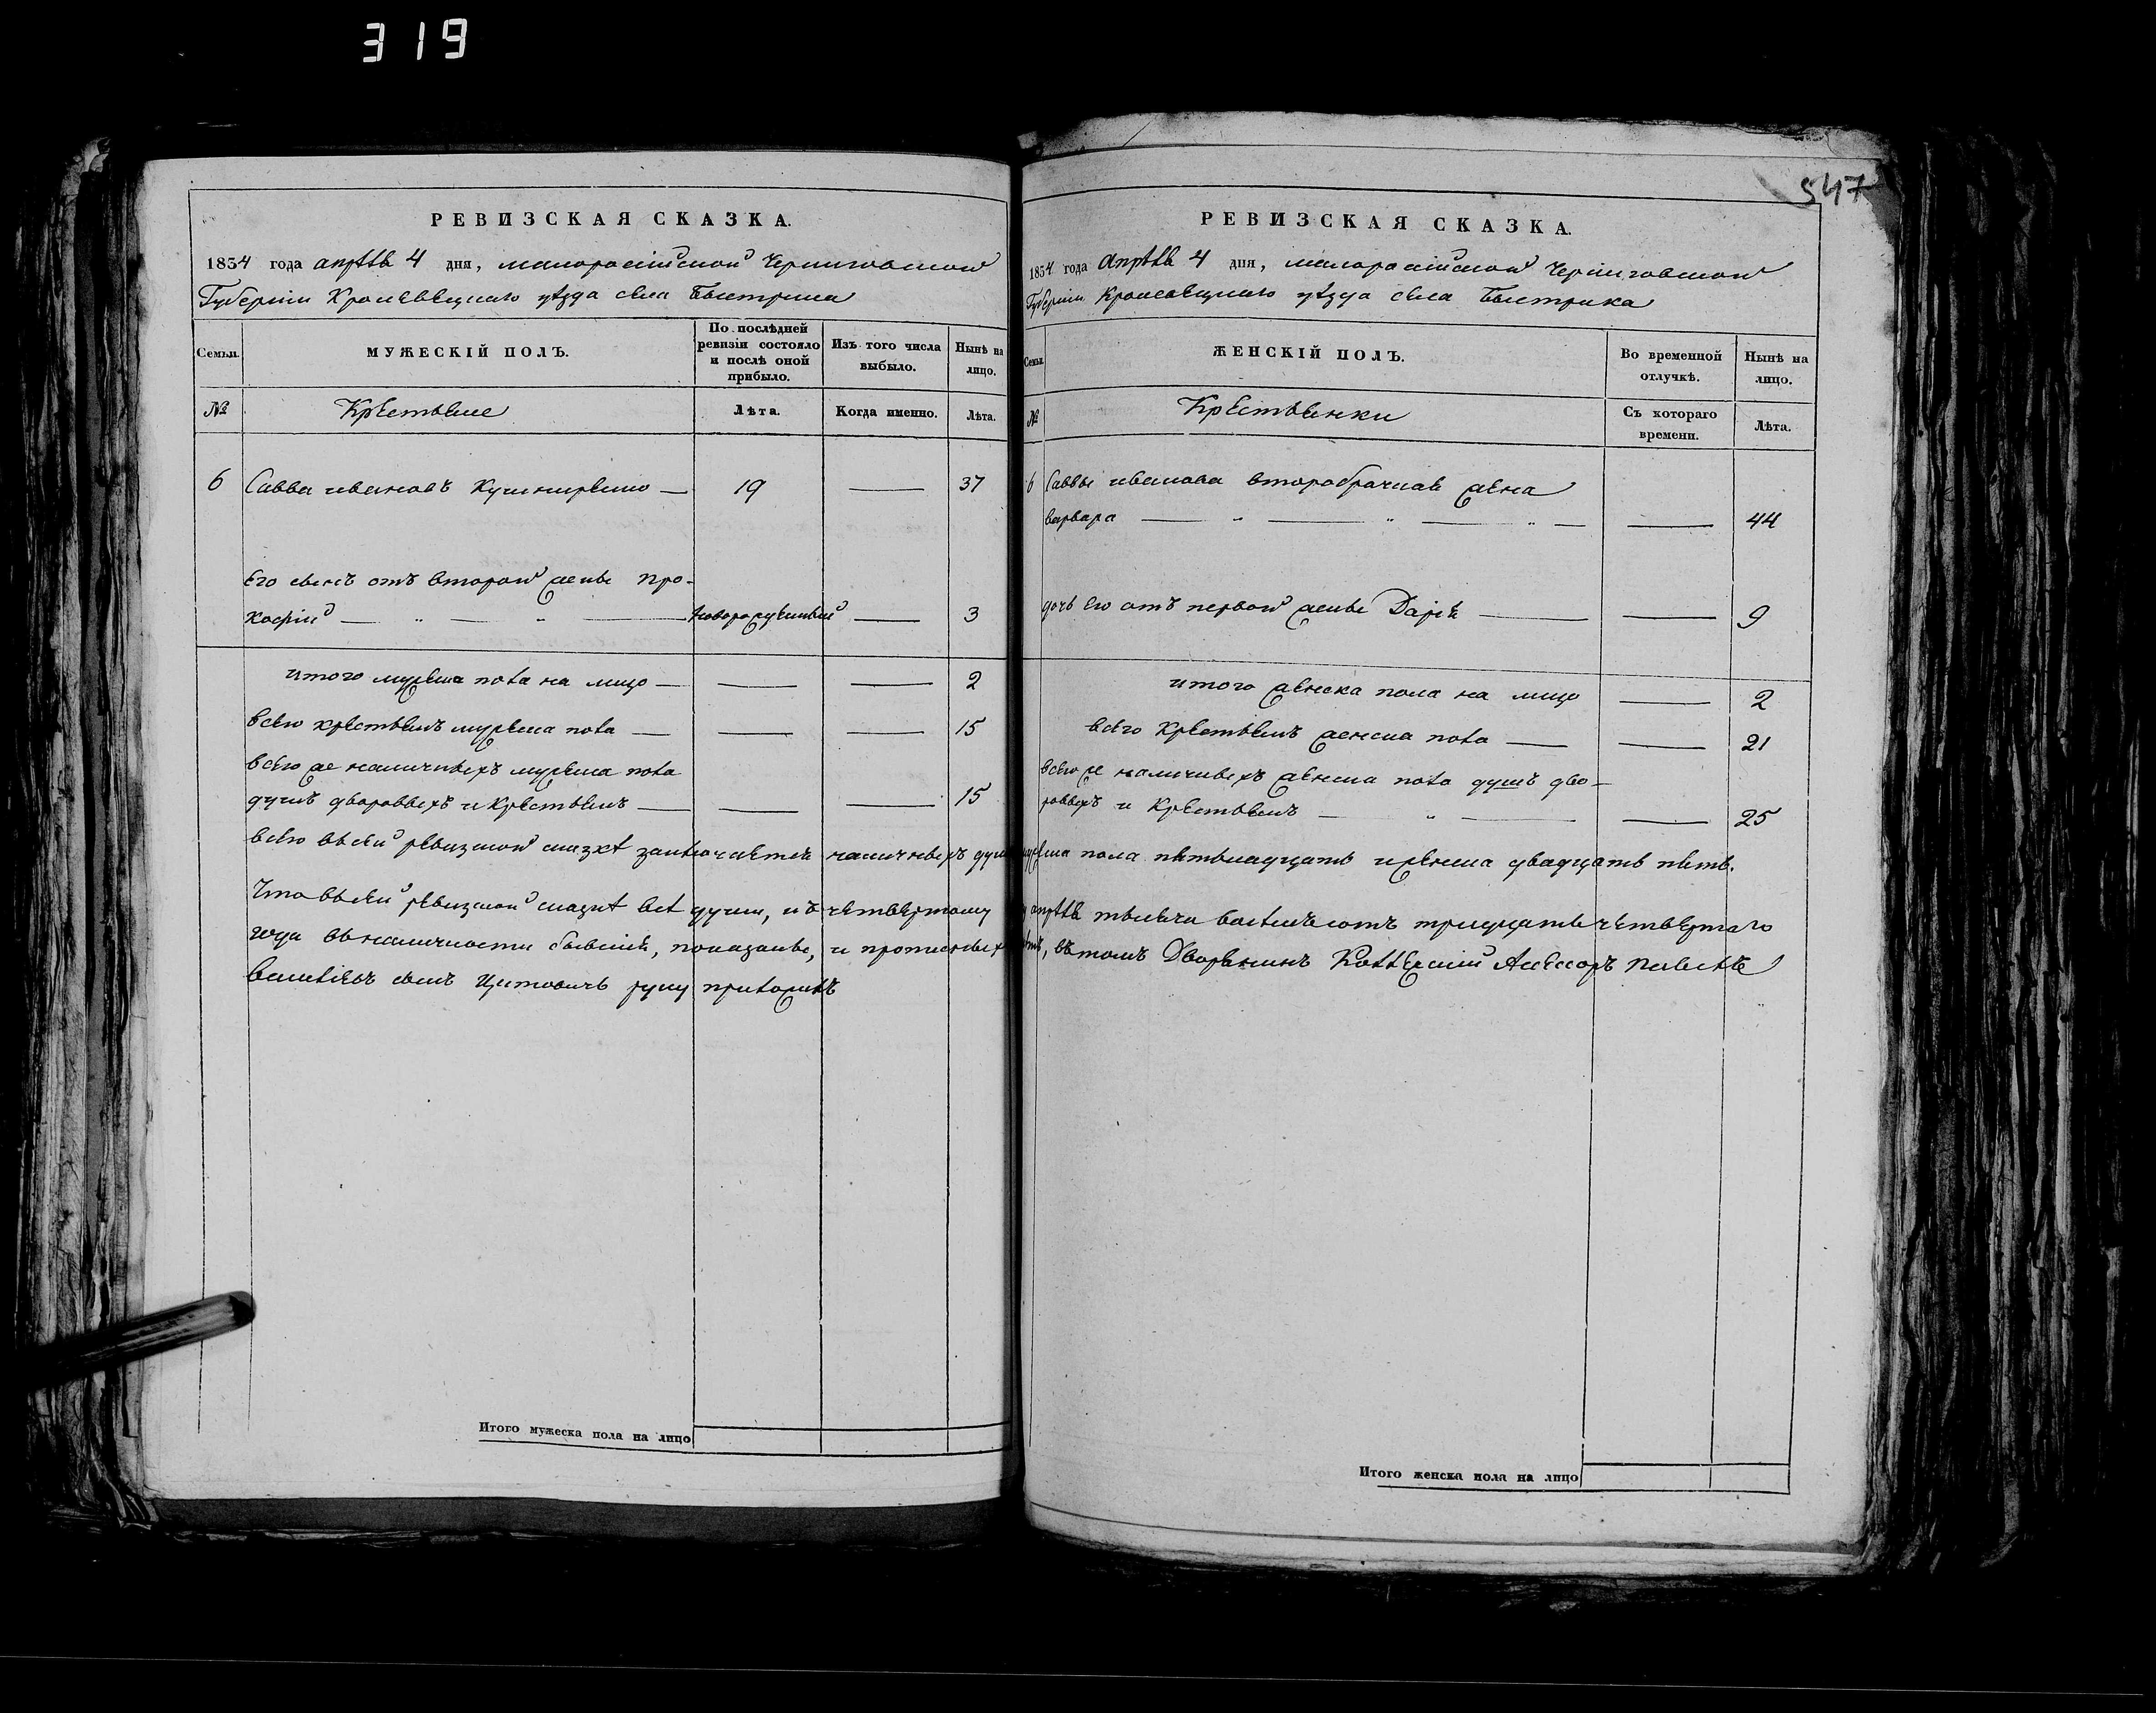 319
547
РЕВИЗСКАЯ СКАЗКА.
1834 года апрѣля 4 дня, малоросiйской Черниговской
Губернiи Кролевецкаго уѣзда села Быстрика
Семьи.
МУЖЕСКІЙ ПОЛЪ.
По послѣдней ревизіи состояло и послѣ оной прибыло.
Изъ того числа выбыло.
Нынѣ на лицо.
№
Крестьяне
Лѣта.
Когда именно.
Лѣта.
6 Савва ивановъ Кушниренко — 19 — 37
Его сынъ отъ второй жены Про-
кофiй — новорожденный — 3
итого мужеска пола на лицо — — — 2
всего крестьянъ мужеска пола — — — 15
всего же наличныхъ мужеска пола
душъ дворовыхъ и крестьянъ — — — 15
РЕВИЗСКАЯ СКАЗКА.
1834 года апрѣля 4 дня, малоросiйской Черниговской
Губернiи Кролевецкаго уѣзда села Быстрика
Семьи.
ЖЕНСКІЙ ПОЛЪ.
Во временной отлучкѣ.
Нынѣ на лицо.
№
Крестьянки
Съ котораго времени.
Лѣта.
6 Саввы иванова второбрачная жена
варвара — — 44
дочь его отъ первой жены Дарья — — 9
итого женска пола на лицо — 2
всего Крестьянъ женска пола — — 21
всего же наличныхъ женска пола душъ дво-
ровыхъ и Крестьянъ — — 25
всего въ сей ревизской сказкѣ заключается наличныхъ душъ мужеска пола пятьнадцать и женска двадцать пять.
Что въ сей ревизской сказкѣ всѣ души, къ четвертому апрѣля тысяча восемьсотъ тридцать четвертаго
года въ наличности бывшiя, показаны, и прописныхъ нѣтъ, въ томъ Дворянинъ Коллежскiй Асессоръ Павелъ
васильевъ сынъ Цитовичъ руку приложилъ
Итого мужеска пола на лицо
Итого женска пола на лицо